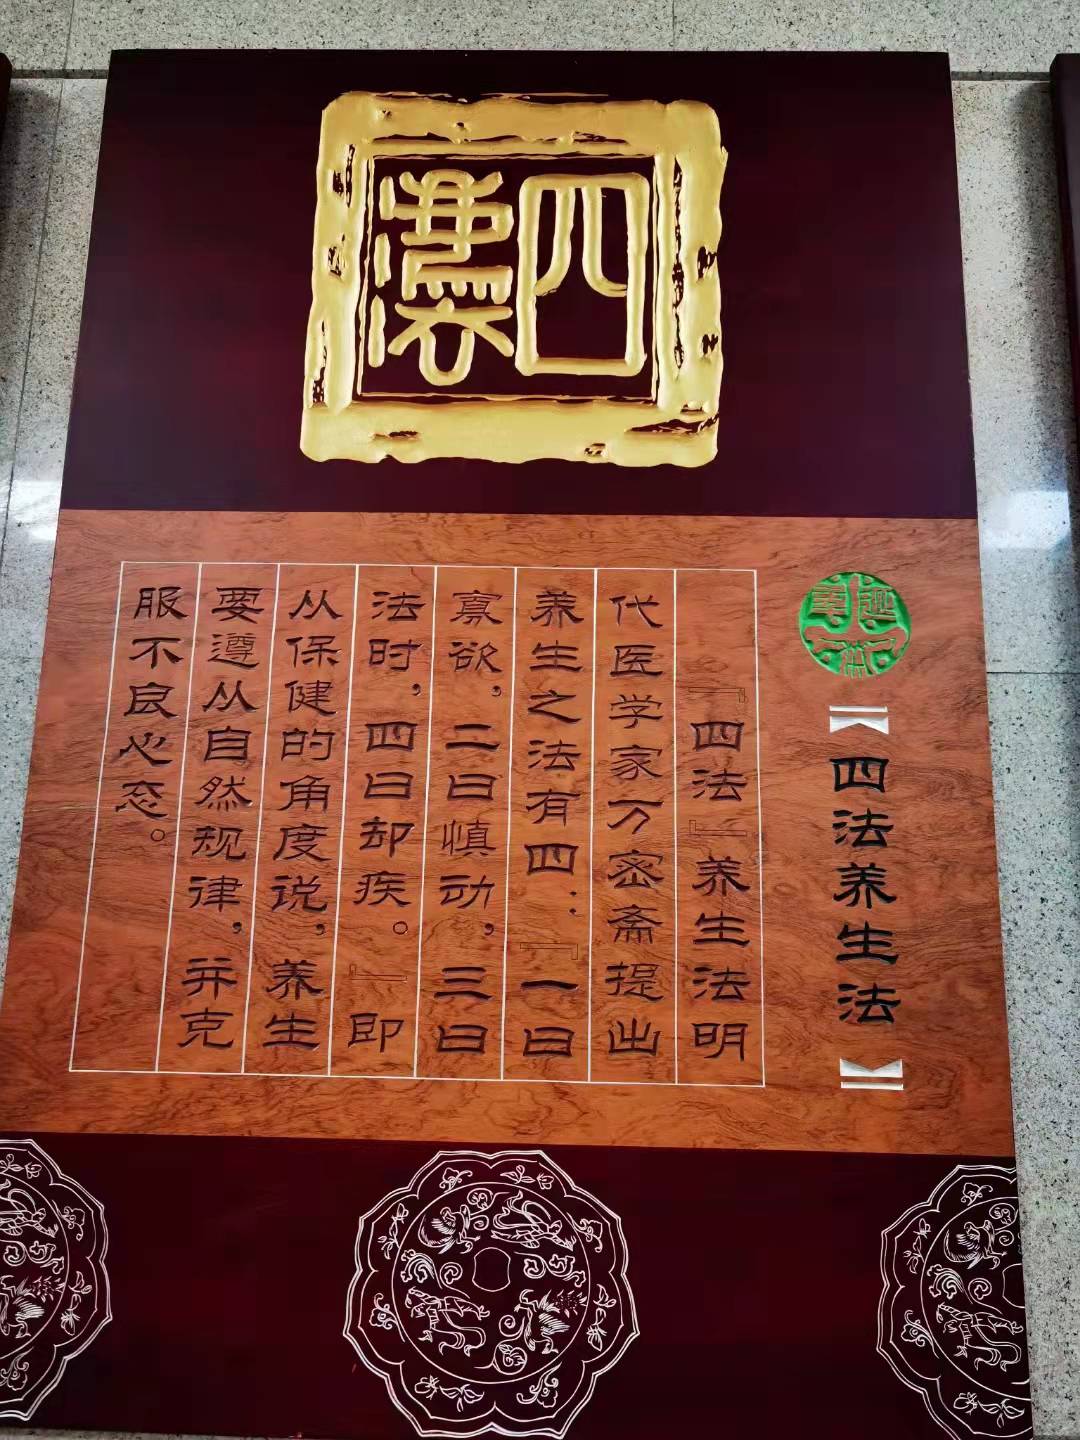 四灋
【四法养生法】
『四法』养生法明
代医学家万密斋提出
养生之法有四：『一曰
寡欲，二曰慎动，三曰
法时，四曰却疾。』即
从保健的角度说，养生
要遵从自然规律，并克
服不良心态。